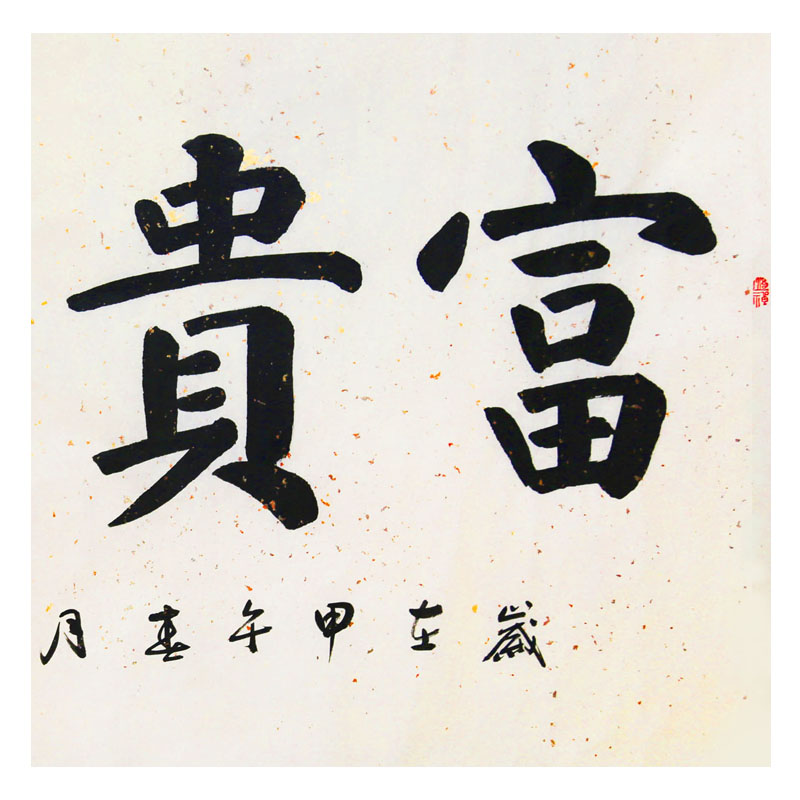 富貴
歲在甲午春月